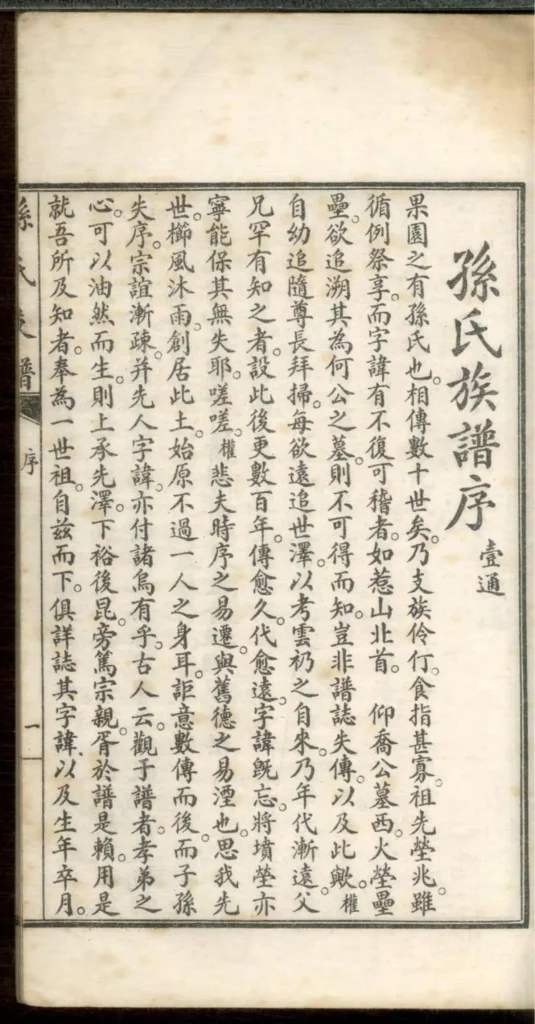 孫氏族譜序 壹通
果園之有孫氏也。相傳數十世矣。乃支族伶仃。食指甚寡。祖先塋兆。雖
循例祭享。而字諱有不復可稽者。如惹山北首。 仰喬公墓西。火塋壘
壘。欲追溯其為何公之墓。則不可得而知。豈非譜誌失傳。以及此歟。權
自幼追隨尊長拜掃。每欲遠追世澤。以考雲礽之自來。乃年代漸遠。父
兄罕有知之者。設此後更數百年。傳愈久。代愈遠。字諱既忘。將墳塋亦
寧能保其無失耶。嗟嗟。權悲夫時序之易遷。與舊德之易湮也。思我先
世櫛風沐雨。創居此土。始原不過一人之身耳。詎意數傳而後。而子孫
失序。宗誼漸疎。并先人字諱。亦付諸烏有乎。古人云。觀于譜者。孝弟之
心。可以油然而生。則上承先澤。下裕後昆。旁篤宗親。胥於譜是賴。用是
就吾所及知者。奉為一世祖。自茲而下。俱詳誌其字諱、以及生年卒月。
孫氏族譜 序 一